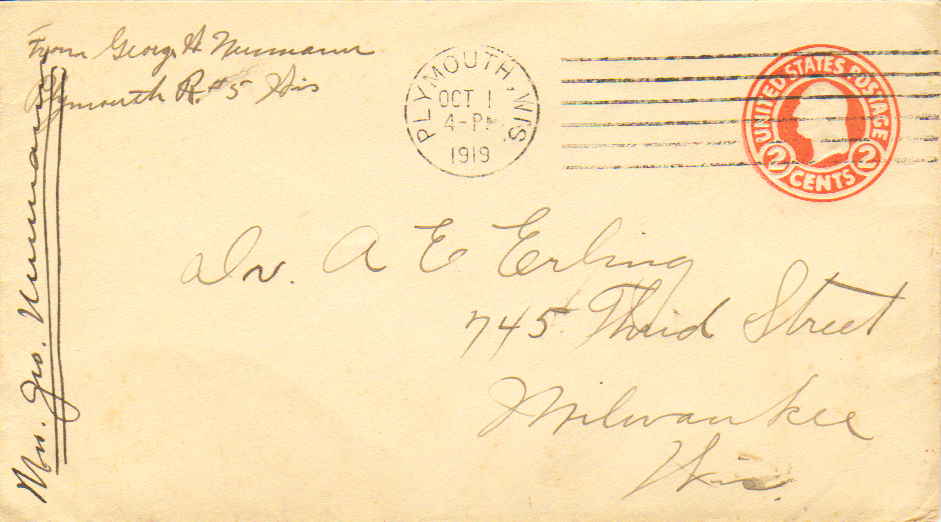 From George H Neumann
Plymouth R. #5 Wis
Mrs. Geo. Neumann
PLYMOUTH, WIS.
OCT 1
4-PM
1919
UNITED STATES POSTAGE
2 CENTS 2
Dr. A E Erling
745 Third Street
Milwaukee
Wis.